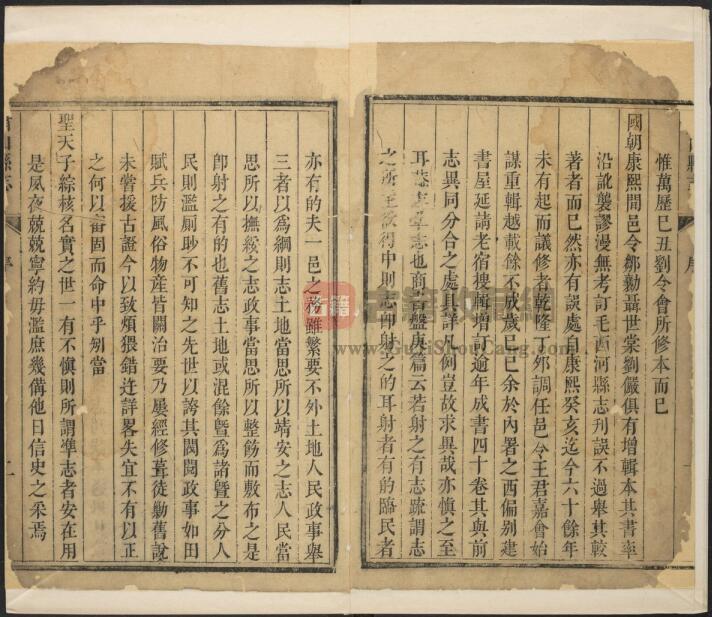 惟萬歷己丑劉令會所修本而已
國朝康熙間邑令鄒勷聶世棠劉儼俱有增輯本其書率
沿訛襲謬漫無考訂毛西河縣志刋誤不過舉其較
著者而已然亦有誤處自康熙癸亥迄今六十餘年
未有起而議修者乾隆丁夘調任邑令王君嘉會始
謀重輯越載餘不成歲己巳余於內署之西偏别建
書屋延請老宿搜輯增訂逾年成書四十卷其與前
志異同分合之處具詳凡例豈故求異哉亦慎之至
耳 志也商書盤庚篇云若射之有志疏謂志
之所主欲得中則志即射之的耳射者有的臨民者
亦有的夫一邑之務雖繁要不外土地人民政事舉
三者以爲綱則志土地當思所以靖安之志人民當
思所以撫綏之志政事當思所以整飭而敷布之是
卽射之有的也舊志土地或混餘暨爲諸暨之分人
民則濫厠眇不可知之先世以誇其閥閱政事如田
賦兵防風俗物産皆關治要乃屢經修葺徒勦舊說
未甞援古證今以致煩猥錯迕詳畧失宜不有以正
之何以審固而命中乎矧當
聖天子綜核名實之世一有不慎則所謂凖志者安在用
是夙夜兢兢寧約毋濫庶幾備他日信史之采焉
山縣志
序
二
古籍收藏網
www.GuJiShouCang.com